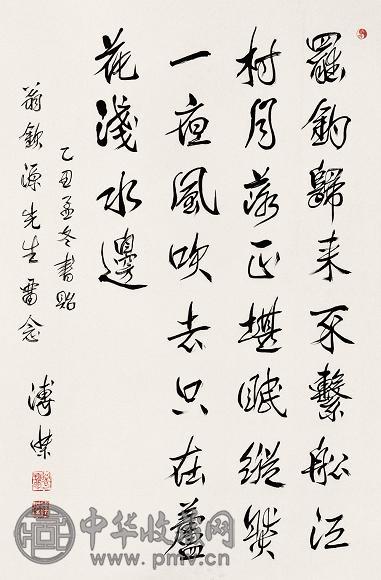 罷釣歸来不繫船江
村月落正堪眠縱然
一夜風吹去只在蘆
花淺水邊
乙丑孟冬書貽
翁欽源先生畱念
溥傑
中华收藏网
www.pmv.cn